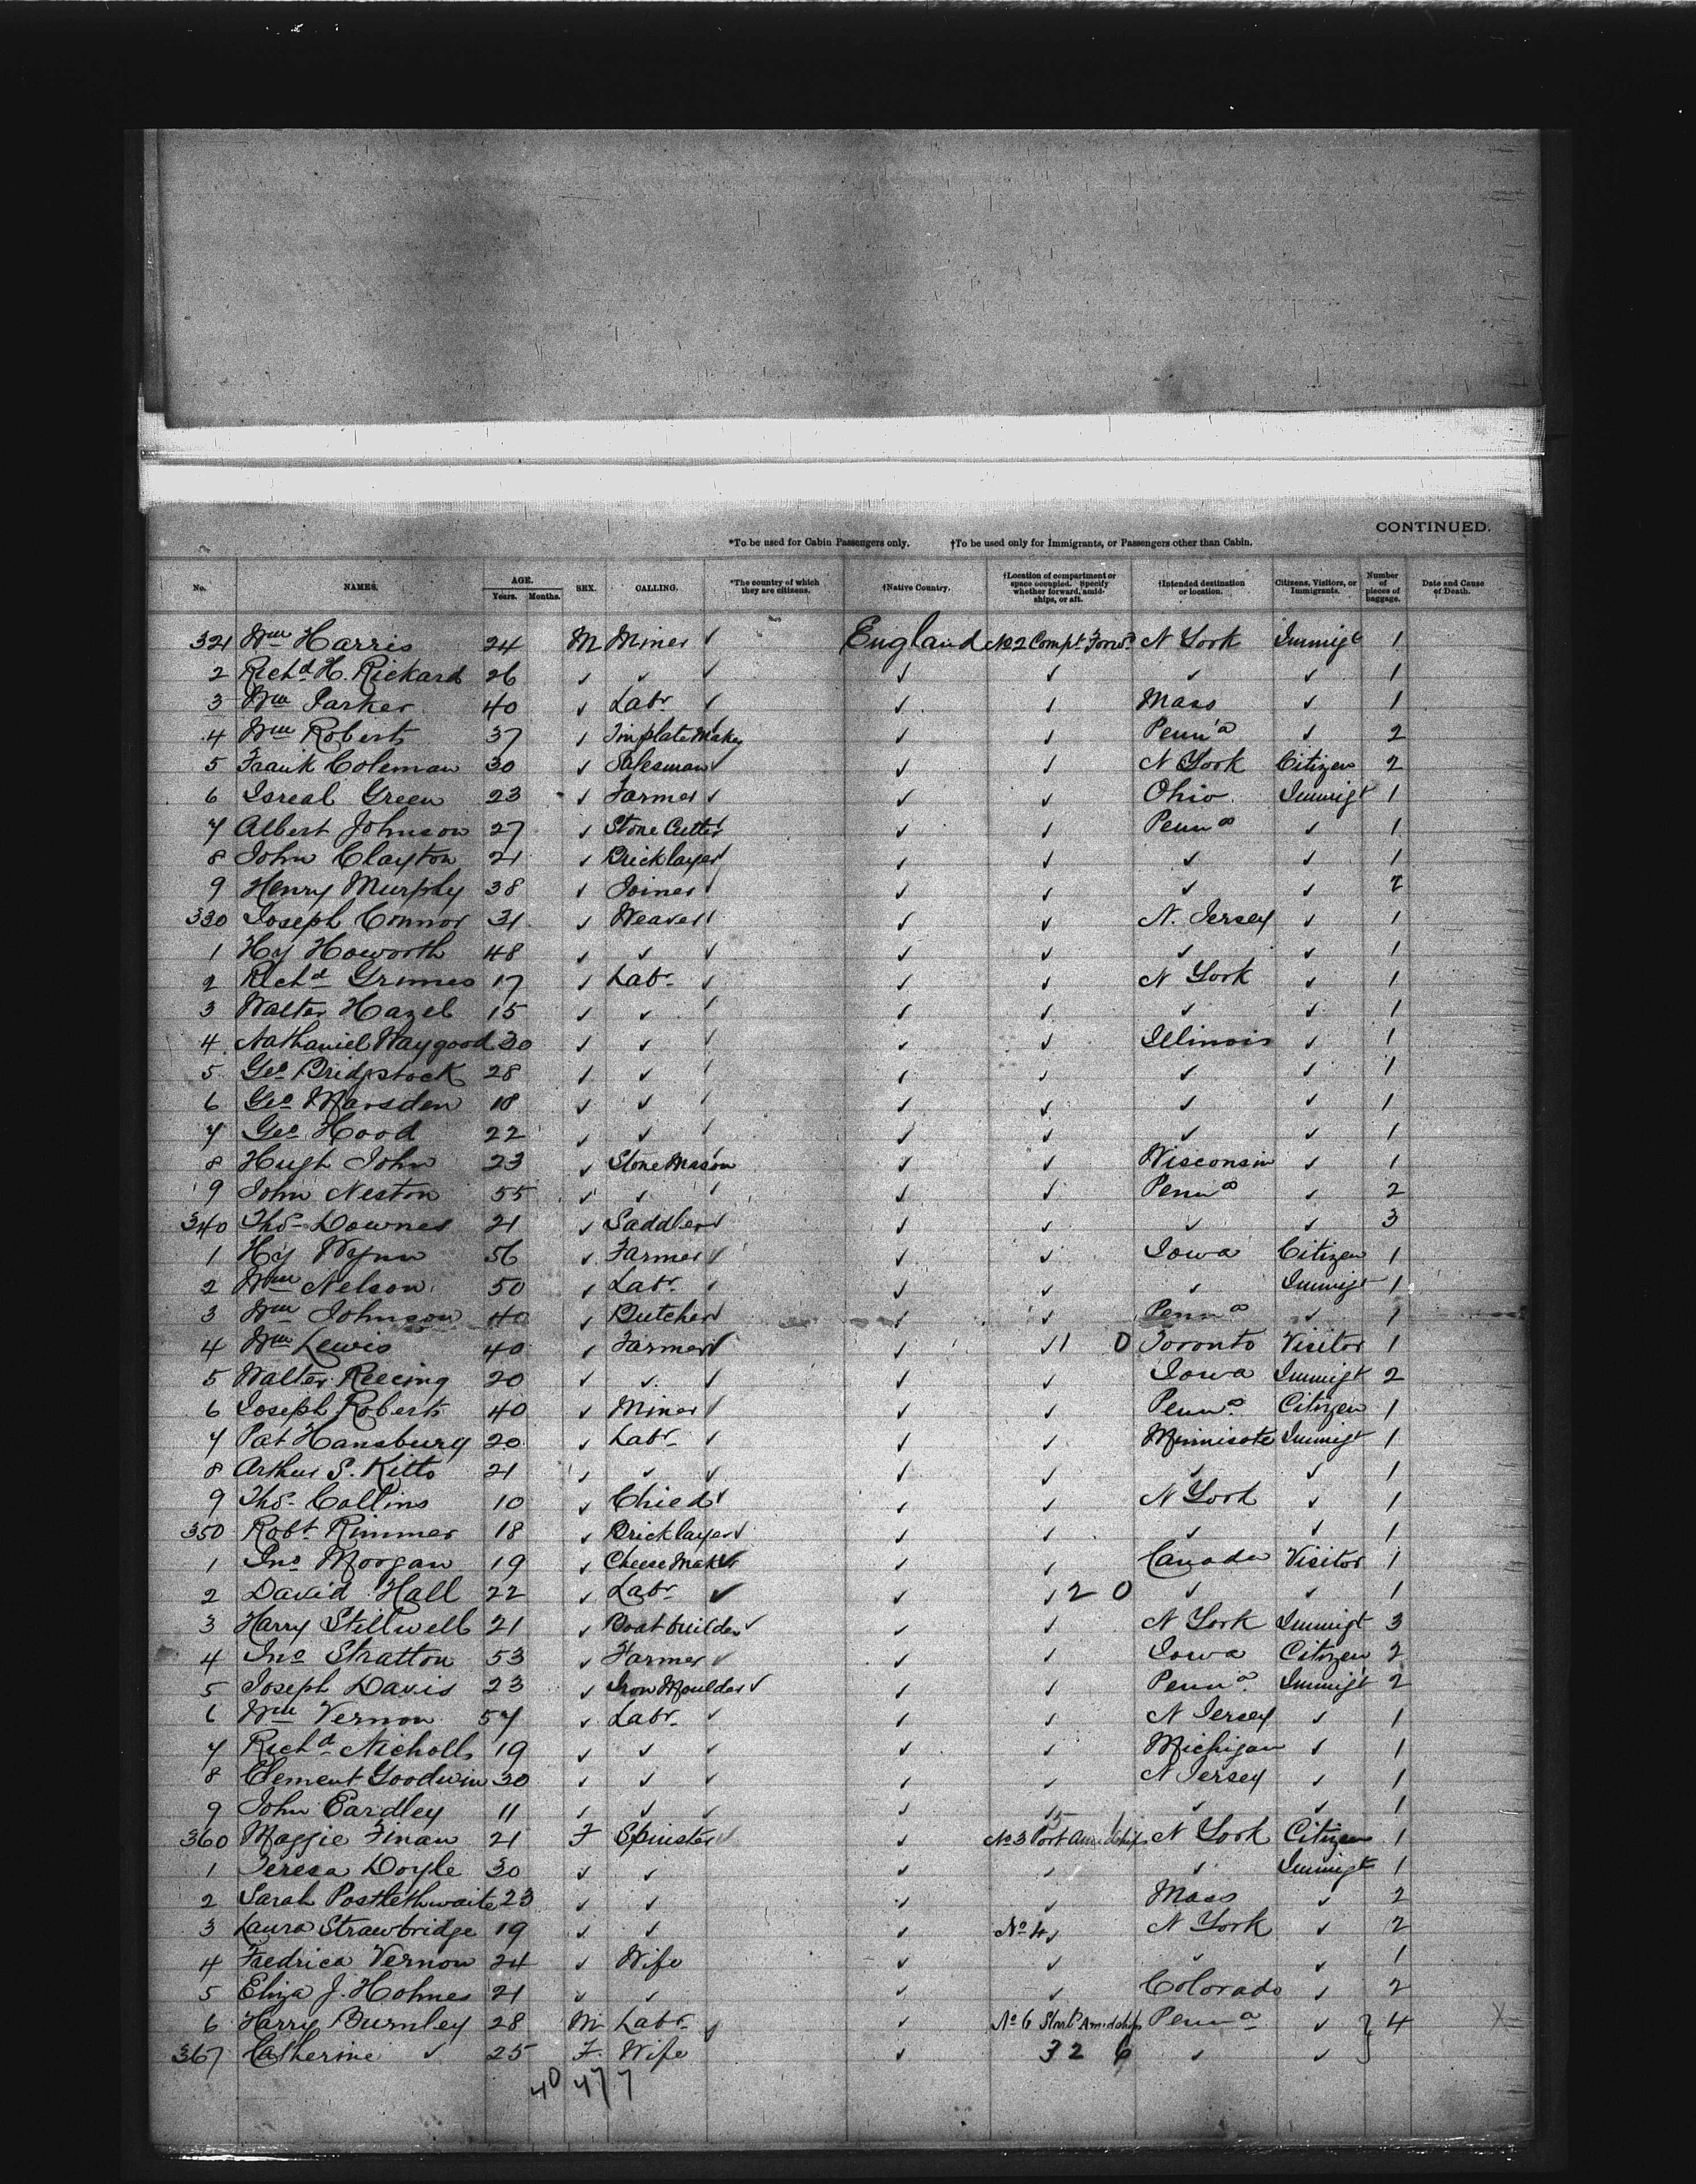 CONTINUED.
*To be used for Cabin Passengers only. †To be used only for Immigrants, or Passengers other than Cabin.
No. NAMES. AGE. Years. Months. SEX. CALLING. *The country of which they are citizens. †Native Country. †Location of compartment or space occupied. Specify whether forward, amidships, or aft. †Intended destination or location. Citizens, Visitors, or Immigrants. Number of pieces of baggage. Date and Cause of Death.
321 Wm Harris 24 M Miner ✓ England No 2 Compt Forwd N York Immigt 1
2 Richd H. Rickard 26 ✓ ✓ ✓ ✓ ✓ ✓ ✓ 1
3 Wm Parker 40 ✓ Labr ✓ ✓ ✓ Mass ✓ 1
4 Wm Roberts 37 ✓ Tinplate Maker ✓ ✓ Penna ✓ 2
5 Frank Coleman 30 ✓ Salesman ✓ ✓ ✓ N York Citizen 2
6 Isreal Green 23 ✓ Farmer ✓ ✓ ✓ Ohio Immigt 1
7 Albert Johnson 27 ✓ Stone Cutter ✓ ✓ ✓ Penna ✓ 1
8 John Clayton 21 ✓ Bricklayer ✓ ✓ ✓ ✓ ✓ 1
9 Henry Murphy 38 ✓ Joiner ✓ ✓ ✓ ✓ ✓ 2
330 Joseph Connor 31 ✓ Weaver ✓ ✓ ✓ N. Jersey ✓ 1
1 Hy Howorth 48 ✓ ✓ ✓ ✓ ✓ ✓ ✓ 1
2 Richd Grimes 17 ✓ Labr ✓ ✓ ✓ N York ✓ 1
3 Walter Hazel 15 ✓ ✓ ✓ ✓ ✓ ✓ ✓ 1
4 Nathaniel Waygood 30 ✓ ✓ ✓ ✓ ✓ Illinois ✓ 1
5 Geo Bridgstock 28 ✓ ✓ ✓ ✓ ✓ ✓ ✓ 1
6 Geo Marsden 18 ✓ ✓ ✓ ✓ ✓ ✓ ✓ 1
7 Geo Hood 22 ✓ ✓ ✓ ✓ ✓ ✓ ✓ 1
8 Hugh John 23 ✓ Stone Mason ✓ ✓ Wisconsin ✓ 1
9 John Neston 55 ✓ ✓ ✓ ✓ ✓ Penna ✓ 2
340 Thos Downes 21 ✓ Saddler ✓ ✓ ✓ ✓ ✓ 3
1 Hy Wynn 56 ✓ Farmer ✓ ✓ ✓ Iowa Citizen 1
2 Wm Nelson 50 ✓ Labr ✓ ✓ ✓ ✓ Immigt 1
3 Wm Johnson 40 ✓ Butcher ✓ ✓ ✓ Penna ✓ 1
4 Wm Lewis 40 ✓ Farmer ✓ ✓ ✓ 1 0 Toronto Visitor 1
5 Walter Reecing 20 ✓ ✓ ✓ ✓ ✓ Iowa Immigt 2
6 Joseph Roberts 40 ✓ Miner ✓ ✓ ✓ Penna Citizen 1
7 Pat Hansburg 20 ✓ Labr ✓ ✓ ✓ Minnisote Immigt 1
8 Arthur S. Kitto 21 ✓ ✓ ✓ ✓ ✓ ✓ ✓ 1
9 Thos Collins 10 ✓ Chied ✓ ✓ ✓ N York ✓ 1
350 Robt Rimmer 18 ✓ Bricklayer ✓ ✓ ✓ ✓ ✓ 1
1 Jno Morgan 19 ✓ Cheese Maker ✓ ✓ ✓ Canada Visitor 1
2 David Hall 22 ✓ Labr ✓ ✓ ✓ 2 0 ✓ ✓ 1
3 Harry Stillwell 21 ✓ Boatbuilder ✓ ✓ ✓ N York Immigt 3
4 Jno Stratton 53 ✓ Farmer ✓ ✓ ✓ Iowa Citizen 2
5 Joseph Davis 23 ✓ Iron Moulder ✓ ✓ ✓ Penna Immigt 2
6 Wm Vernon 57 ✓ Labr ✓ ✓ ✓ N Jersey ✓ 1
7 Richd Nicholls 19 ✓ ✓ ✓ ✓ ✓ Michigan ✓ 1
8 Clement Goodwin 30 ✓ ✓ ✓ ✓ ✓ N Jersey ✓ 1
9 John Eardley 11 ✓ ✓ ✓ ✓ ✓ ✓ ✓ 1
360 Maggie Finan 21 F Spinster ✓ ✓ No 3 Port Amidships N York Citizen 1
1 Teresa Doyle 30 ✓ ✓ ✓ ✓ ✓ Immigt 1
2 Sarah Postlethwaite 23 ✓ ✓ ✓ ✓ Mass ✓ 2
3 Laura Strawbridge 19 ✓ ✓ ✓ No 4 ✓ N York ✓ 2
4 Fredrica Vernon 24 ✓ Wife ✓ ✓ ✓ ✓ 1
5 Eliza J. Holmes 21 ✓ ✓ ✓ ✓ Colorado ✓ 2
6 Harry Burnley 28 M Labr ✓ ✓ No 6 Amidships Penna ✓ 4 X
367 Catherine ✓ 25 F. Wife ✓ 3 2 6 ✓ ✓
40 477